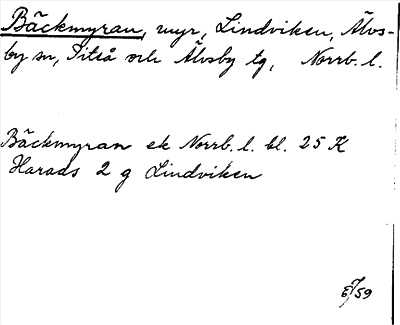 Bäckmyran, myr, Lindviken, Älvs-
by sn, Piteå och Älvsby tg, Norrb. l.
Bäckmyran ek Norrb. l. bl. 25 K
Harads 2 g Lindviken
/59